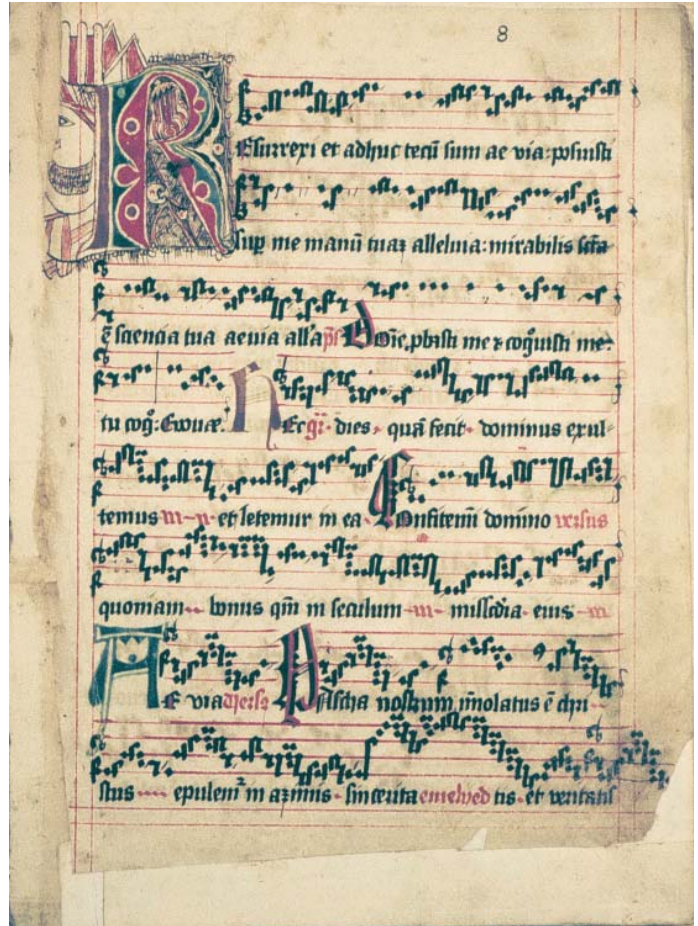 8
Resurrexi et adhuc tecū sum ae via: posuisti
sup me manū tuaȝ alleluia: mirabilis scīa
ē sciencia tua aevia all'a p̄s Dōie, pbasti me ⁊ cog̊uisti me:
tu cog̊: Evouae. HEc gr̄. dies quā fecit dominus exul-
temus et letemur in ea Confitemī domino versus
quoniam bonus qm̄ in seculum miscdia eius
AE via Pascha nostrum īmolatus ē chri
stus epulem in azimis sincerita tis et veritatis